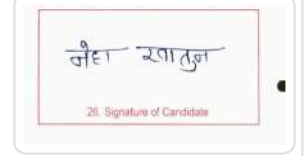 नेहा खातुन
26. Signature of Candidate